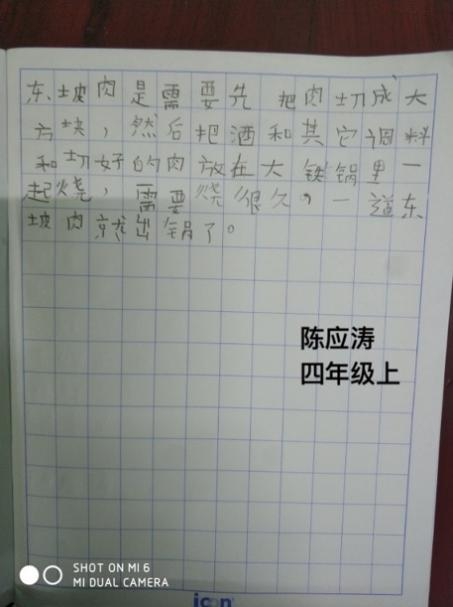 东坡肉是需要先 把肉切成大
方块，然后把酒和其它调料
和切好的肉放在大铁锅里一
起烧，需要烧很久，一道东
坡肉就出锅了。
陈应涛
四年级上
SHOT ON MI 6
MI DUAL CAMERA
icon